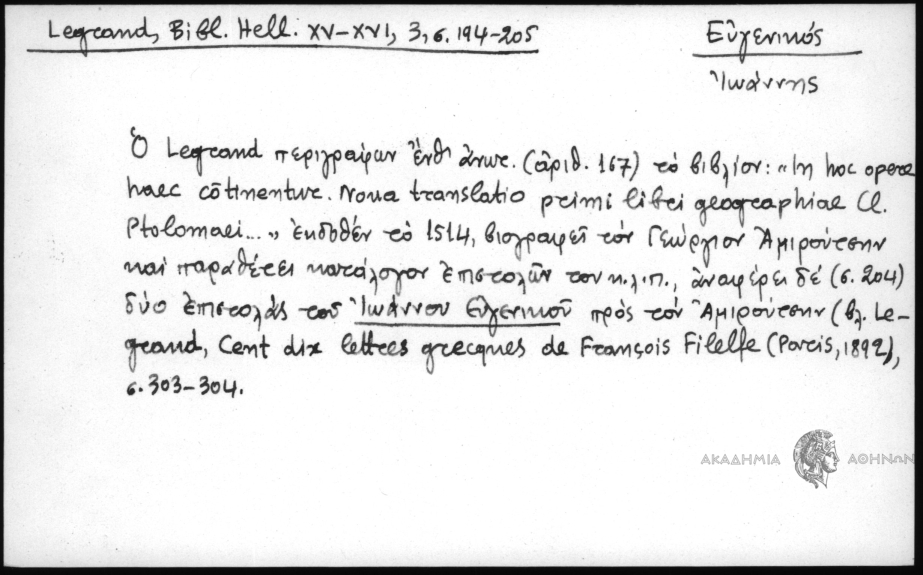 Legrand, Bibl. Hell. XV-XVI, 3, σ. 194-205
Εὐγενικός
Ἰωάννης
Ὁ Legrand περιγράφων ἔνθ' ἀνωτ. (ἀριθ. 167) τὸ βιβλίον: "In hoc opere
haec cōtinentur. Noua translatio primi libri geographiae Cl.
Ptolomaei..." ἐκδοθὲν τὸ 1514, βιογραφεῖ τὸν Γεώργιον Ἀμιρούτσην
καὶ παραθέτει κατάλογον ἐπιστολῶν του κ.λ.π., ἀναφέρει δὲ (σ. 204)
δύο ἐπιστολὰς τοῦ Ἰωάννου Εὐγενικοῦ πρὸς τὸν Ἀμιρούτσην (βλ. Le-
grand, Cent dix lettres grecques de François Filelfe (Paris, 1892),
σ. 303-304.
ΑΚΑΔΗΜΙΑ ΑΘΗΝΩΝ